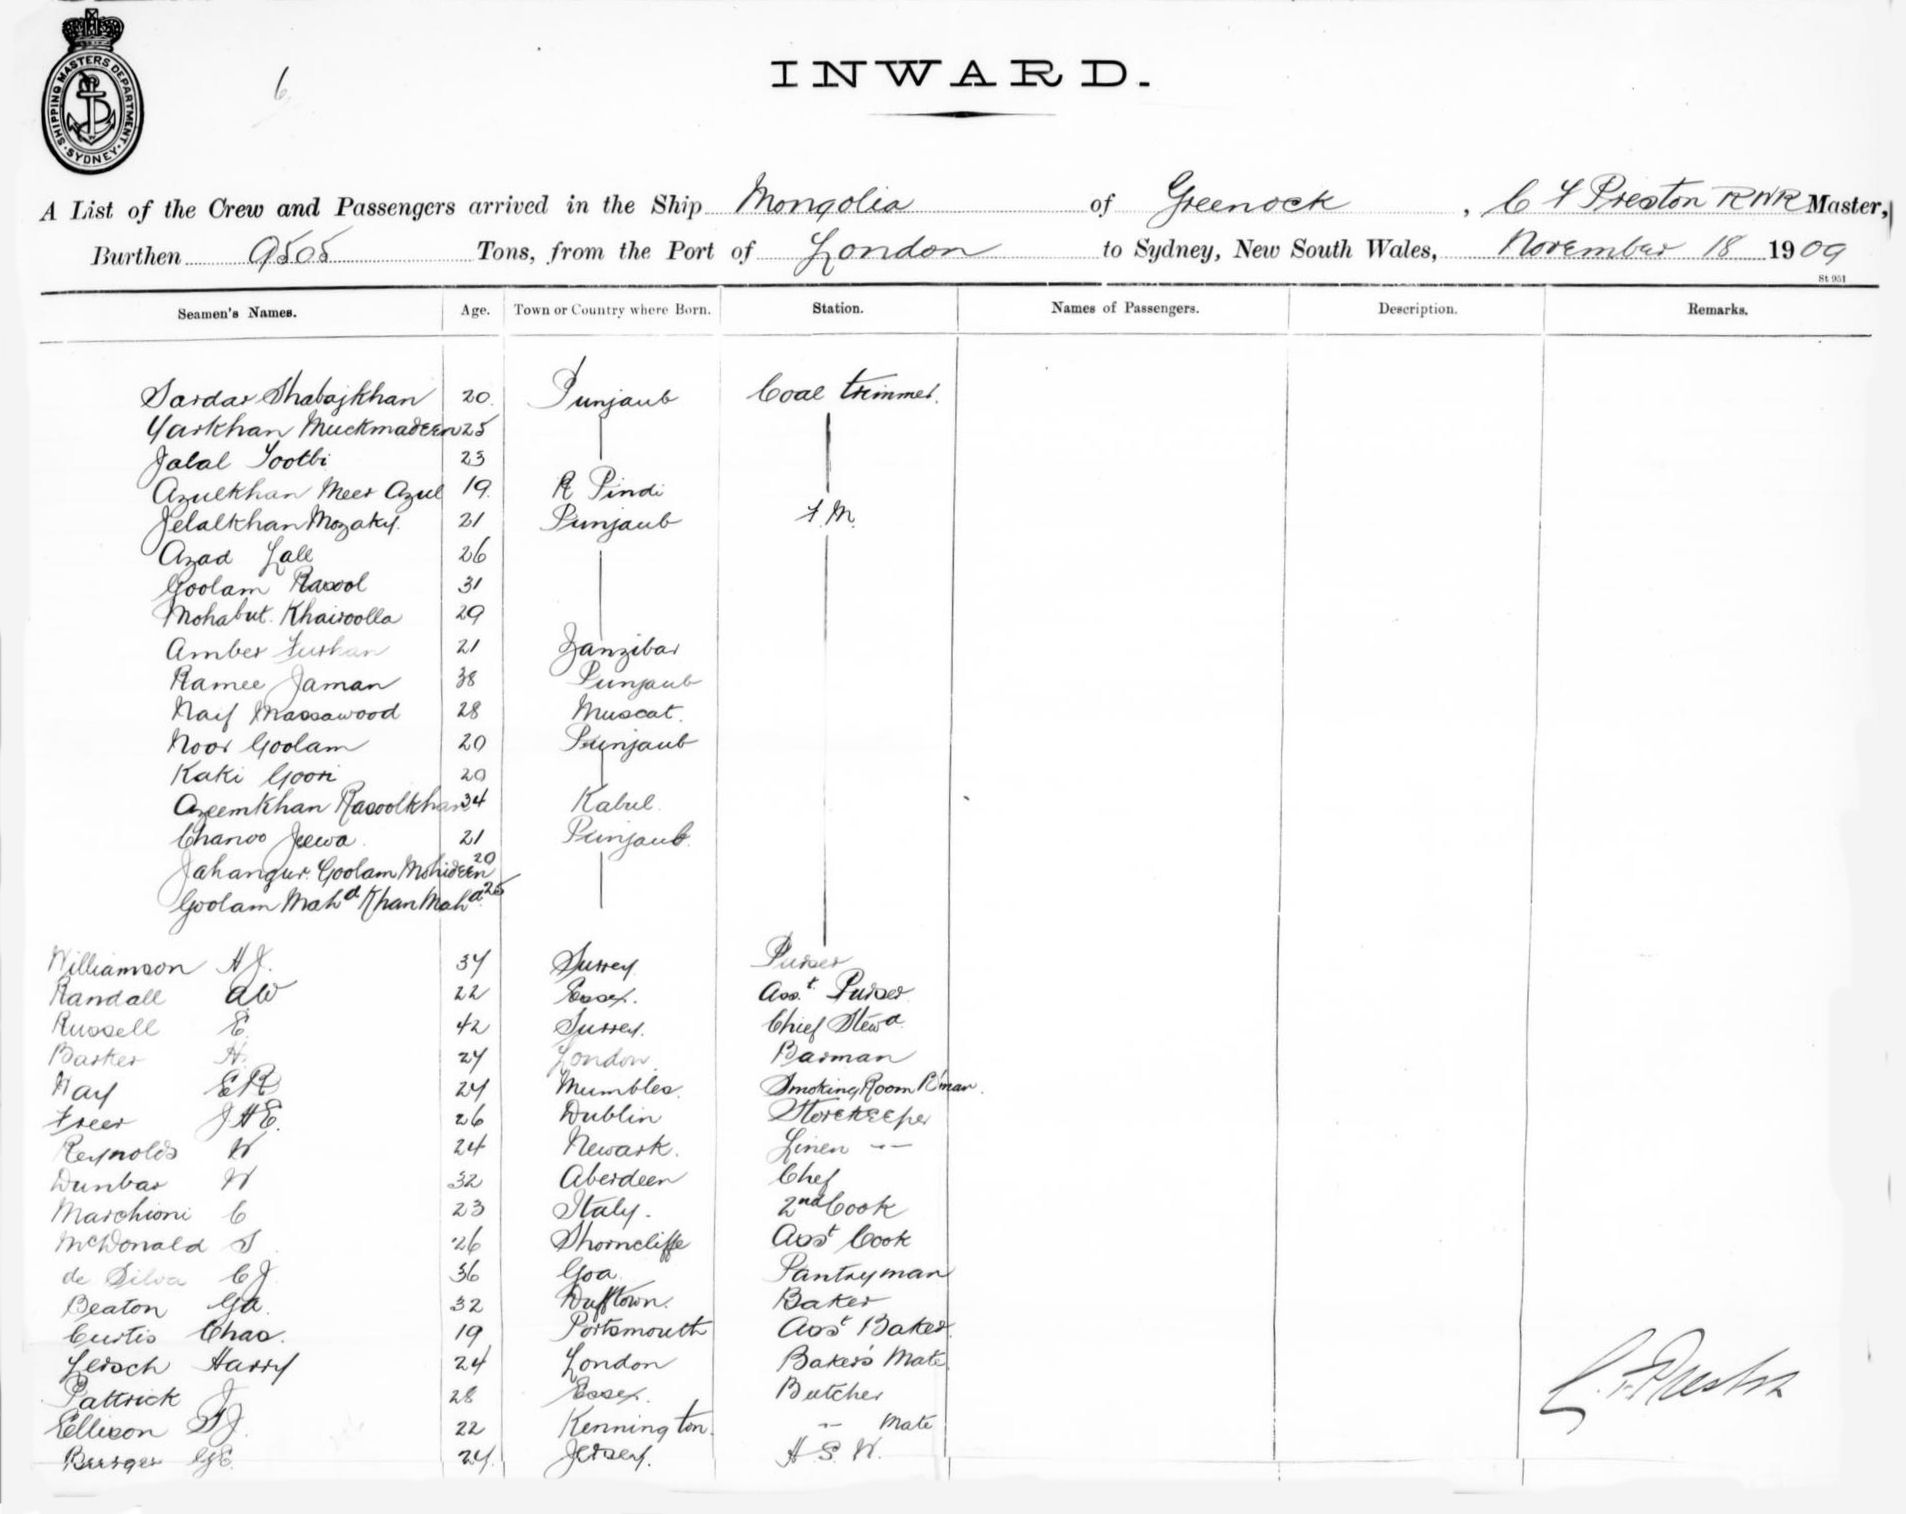 SHIPPING MASTERS DEPARTMENT. SYDNEY
6
INWARD.
A List of the Crew and Passengers arrived in the Ship Mongolia of Greenock, C F Preston RNR Master,
Burthen 9505 Tons, from the Port of London to Sydney, New South Wales, November 18 1909
St 951
Seamen's Names. Age. Town or Country where Born. Station. Names of Passengers. Description. Remarks.
Sardar Shabajkhan 20 Punjaub Coal trimmer.
Yarkhan Muckmadeen 25
Jalal Tootbi 23
Azulkhan Meer Azul 19. R Pindi
Jelalkhan Mozaky. 21 Punjaub F.M.
Azad Lall 26
Goolam Rasool 31
Mohabut Khairoolla 29
Amber Furhan 21 Zanzibar
Ramee Jaman 38 Punjaub
Naif Massawood 28 Muscat.
Noor Goolam 20 Punjaub
Kaki Goori 20
Azeemkhan Rasoolkhan 34 Kabul.
Chanoo Jeewa. 21 Punjaub.
Jahangur. Goolam Mohideen 20
Goolam Mahd Khan Mahd. 25
Williamson H J. 34 Surrey Purser
Randall A W 22 Essex. Asst. Purser
Russell E. 42 Surrey. Chief Stewd.
Barker H. 24 London. Barman
Hay E R 24 Mumbles. Smoking Room B'man.
Freer J H E. 26 Dublin Storekeeper
Reynolds W 24 Newark. Linen --
Dunbar W 32 Aberdeen Chef
Marchioni C 23 Italy. 2nd Cook
McDonald S 26 Shorncliffe Asst Cook
de Silva C J. 36 Goa Pantryman
Beaton G A. 32 Dufftown. Baker
Curtis Chas. 19 Portsmouth Asst Baker.
Lersch Harry 24 London Baker's Mate
Pattrick J 28 Essex. Butcher
Ellison T J. 22 Kennington. -- Mate
Burger G E. 24. Jersey. A S W.
C. F. Preston